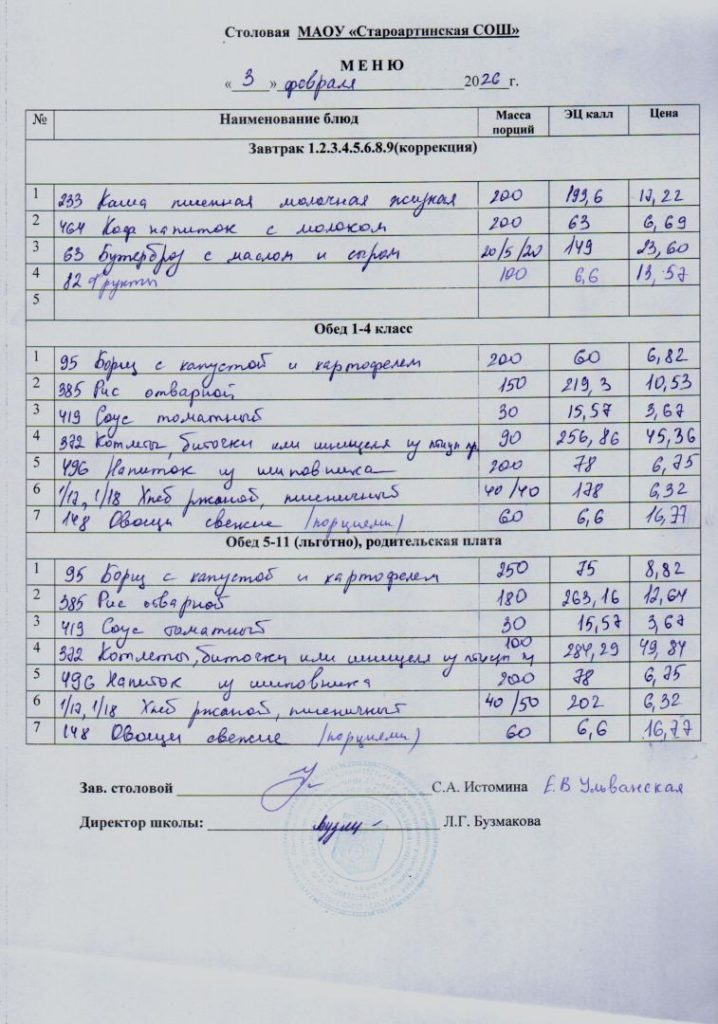 Столовая МАОУ «Староартинская СОШ»
М Е Н Ю
« 3 » февраля 2026 г.
№ Наименование блюд Масса порций ЭЦ калл Цена
Завтрак 1.2.3.4.5.6.8.9(коррекция)
1 233 Каша пшенная молочная жидкая 200 193,6 12,22
2 464 Коф напиток с молоком 200 63 6,69
3 63 Бутерброд с маслом и сыром 20/5/20 149 23,60
4 82 Фрукты 100 6,6 13,57
5
Обед 1-4 класс
1 95 Борщ с капустой и картофелем 200 60 6,82
2 385 Рис отварной 150 219,3 10,53
3 419 Соус томатный 30 15,57 3,67
4 372 Котлеты, биточки или шницеля из птицы пр. 90 256,86 45,36
5 496 Напиток из шиповника 200 78 6,75
6 1/17, 1/18 Хлеб ржаной, пшеничный 40/40 178 6,32
7 148 Овощи свежие /порциями/ 60 6,6 16,77
Обед 5-11 (льготно), родительская плата
1 95 Борщ с капустой и картофелем 250 75 8,82
2 385 Рис отварной 180 263,16 12,64
3 419 Соус томатный 30 15,57 3,67
4 372 Котлеты, биточки или шницеля из птицы 100 284,29 49,84
5 496 Напиток из шиповника 200 78 6,75
6 1/17, 1/18 Хлеб ржаной, пшеничный 40/50 202 6,32
7 148 Овощи свежие /порциями/ 60 6,6 16,77
Зав. столовой С.А. Истомина Е.В Ульванская
Директор школы: Л.Г. Бузмакова